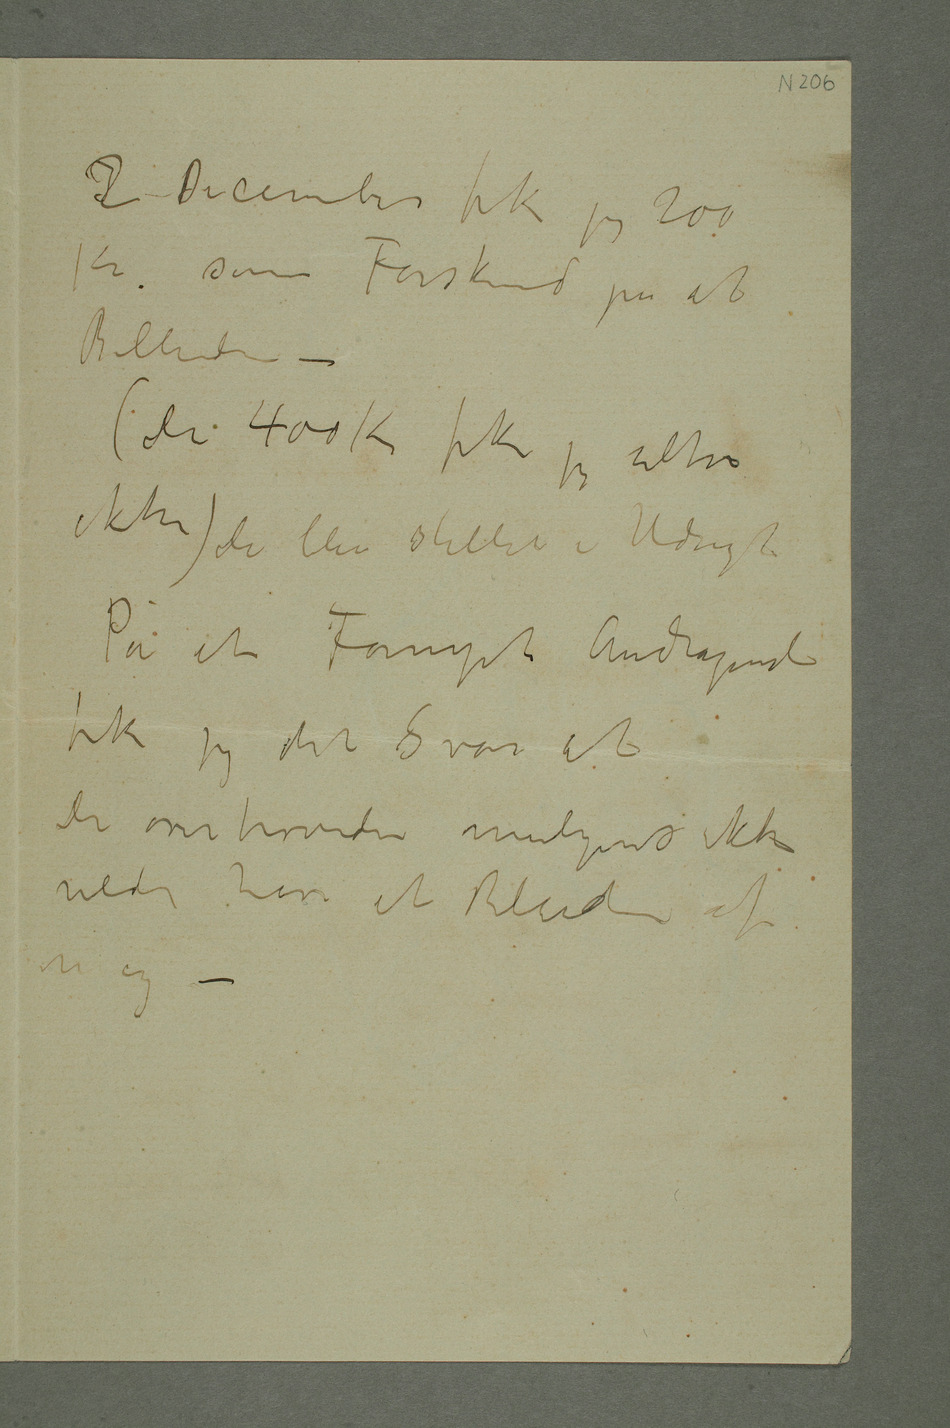 N 206
2 December fik jeg 200
Kr. som Forskud på et
Billede –
(de 400 Kr fik jeg altså
ikke) de blev stillet i Udsigt
På et Fornyet Andragende
fik jeg det Svar at
de overhovedet muligens ikke
vilde have et Billede af
meg –